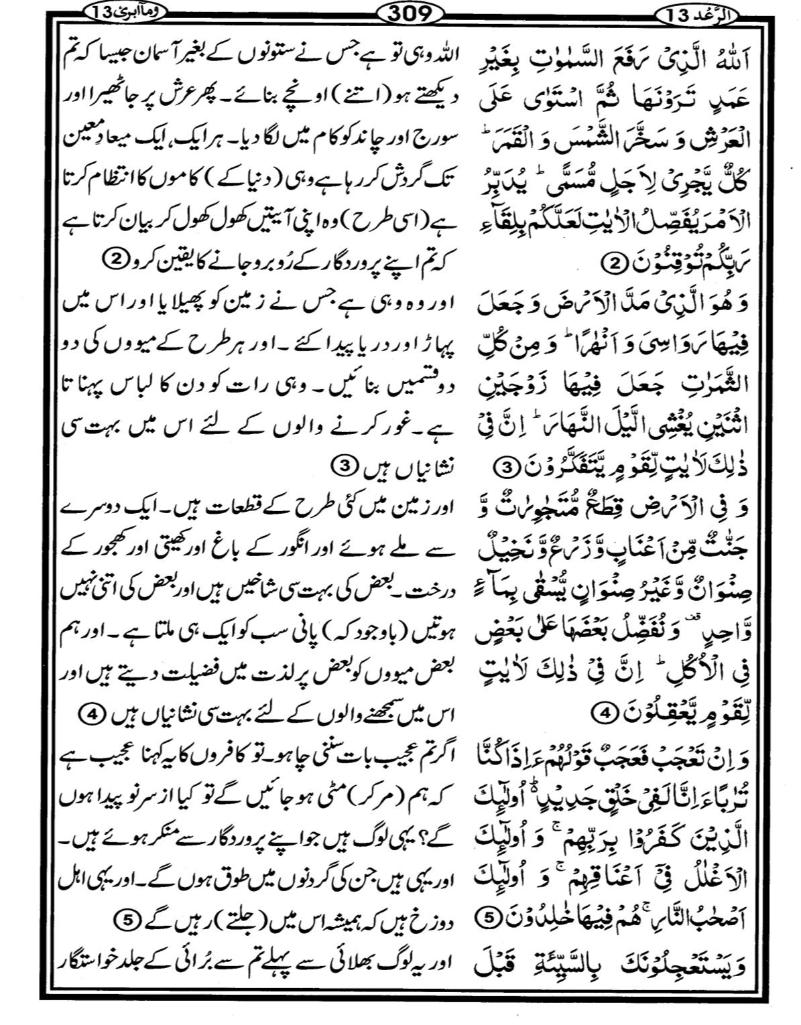 الرّعد 13
309
ومآ ابرئ 13
اَللّٰهُ الَّذِىْ رَفَعَ السَّمٰوٰتِ بِغَيْرِ
عَمَدٍ تَرَوْنَهَا ثُمَّ اسْتَوٰى عَلَى
الْعَرْشِ وَ سَخَّرَ الشَّمْسَ وَ الْقَمَرَ ؕ
كُلٌّ يَّجْرِىْ لِاَجَلٍ مُّسَمًّى ؕ يُدَبِّرُ
الْاَمْرَ يُفَصِّلُ الْاٰيٰتِ لَعَلَّكُمْ بِلِقَآءِ
رَبِّكُمْ تُوْقِنُوْنَ ②
وَ هُوَ الَّذِىْ مَدَّ الْاَرْضَ وَ جَعَلَ
فِيْهَا رَوَاسِىَ وَ اَنْهٰرًا ؕ وَ مِنْ كُلِّ
الثَّمَرٰتِ جَعَلَ فِيْهَا زَوْجَيْنِ
اثْنَيْنِ يُغْشِى الَّيْلَ النَّهَارَ ؕ اِنَّ فِىْ
ذٰلِكَ لَاٰيٰتٍ لِّقَوْمٍ يَّتَفَكَّرُوْنَ ③
وَ فِى الْاَرْضِ قِطَعٌ مُّتَجٰوِرٰتٌ وَّ
جَنّٰتٌ مِّنْ اَعْنَابٍ وَّ زَرْعٌ وَّ نَخِيْلٌ
صِنْوَانٌ وَّ غَيْرُ صِنْوَانٍ يُّسْقٰى بِمَآءٍ
وَّاحِدٍ ۫ وَ نُفَضِّلُ بَعْضَهَا عَلٰى بَعْضٍ
فِى الْاُكُلِ ؕ اِنَّ فِىْ ذٰلِكَ لَاٰيٰتٍ
لِّقَوْمٍ يَّعْقِلُوْنَ ④
وَ اِنْ تَعْجَبْ فَعَجَبٌ قَوْلُهُمْ ءَاِذَا كُنَّا
تُرٰبًا ءَاِنَّا لَفِىْ خَلْقٍ جَدِيْدٍ ؕ اُولٰٓئِكَ
الَّذِيْنَ كَفَرُوْا بِرَبِّهِمْ ۚ وَ اُولٰٓئِكَ
الْاَغْلٰلُ فِىْٓ اَعْنَاقِهِمْ ۚ وَ اُولٰٓئِكَ
اَصْحٰبُ النَّارِ ۚ هُمْ فِيْهَا خٰلِدُوْنَ ⑤
وَ يَسْتَعْجِلُوْنَكَ بِالسَّيِّئَةِ قَبْلَ
اللہ وہی تو ہے جس نے ستونوں کے بغیر آسمان جیسا کہ تم
دیکھتے ہو (اتنے) اونچے بنائے۔ پھر عرش پر جا ٹھیرا اور
سورج اور چاند کو کام میں لگا دیا۔ ہر ایک، ایک میعادِ معین
تک گردش کر رہا ہے وہی (دنیا کے) کاموں کا انتظام کرتا
ہے (اسی طرح) وہ اپنی آیتیں کھول کھول کر بیان کرتا ہے
کہ تم اپنے پروردگار کے رُوبرو جانے کا یقین کرو ②
اور وہ وہی ہے جس نے زمین کو پھیلایا اور اس میں
پہاڑ اور دریا پیدا کئے ۔اور ہر طرح کے میووں کی دو
دو قسمیں بنائیں۔ وہی رات کو دن کا لباس پہناتا
ہے۔ غور کرنے والوں کے لئے اس میں بہت سی
نشانیاں ہیں ③
اور زمین میں کئی طرح کے قطعات ہیں۔ ایک دوسرے
سے ملے ہوئے اور انگور کے باغ اور کھیتی اور کھجور کے
درخت۔ بعض کی بہت سی شاخیں ہیں اور بعض کی اتنی نہیں
ہوتیں (باوجود کہ) پانی سب کو ایک ہی ملتا ہے ۔ اور ہم
بعض میووں کو بعض پر لذت میں فضیلت دیتے ہیں اور
اس میں سمجھنے والوں کے لئے بہت سی نشانیاں ہیں ④
اگر تم عجیب بات سننی چاہو۔ تو کافروں کا یہ کہنا عجیب ہے
کہ ہم (مر کر) مٹی ہو جائیں گے تو کیا از سرِ نو پیدا ہوں
گے؟ یہی لوگ ہیں جو اپنے پروردگار سے منکر ہوئے ہیں۔
اور یہی ہیں جن کی گردنوں میں طوق ہوں گے۔ اور یہی اہل
دوزخ ہیں کہ ہمیشہ اس میں (جلتے) رہیں گے ⑤
اور یہ لوگ بھلائی سے پہلے تم سے بُرائی کے جلد خواستگار